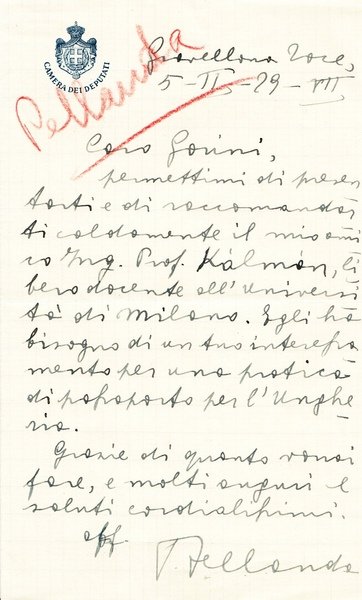 CAMERA DEI DEPUTATI
Pellanda
Gravellona Toce,
5-II-29-VII
Caro Gorini,
permettimi di presen
tarti e di raccomandar
ti caldamente il mio ami
co Ing. Prof. Kálmán, li
bero docente all'Universi
tà di Milano. Egli ha
bisogno di un tuo interessa
mento per una pratica
di passaporto per l'Unghe
ria.
Grazie di quanto vorrai
fare, e molti auguri e
saluti cordialissimi.
aff.
Pellanda